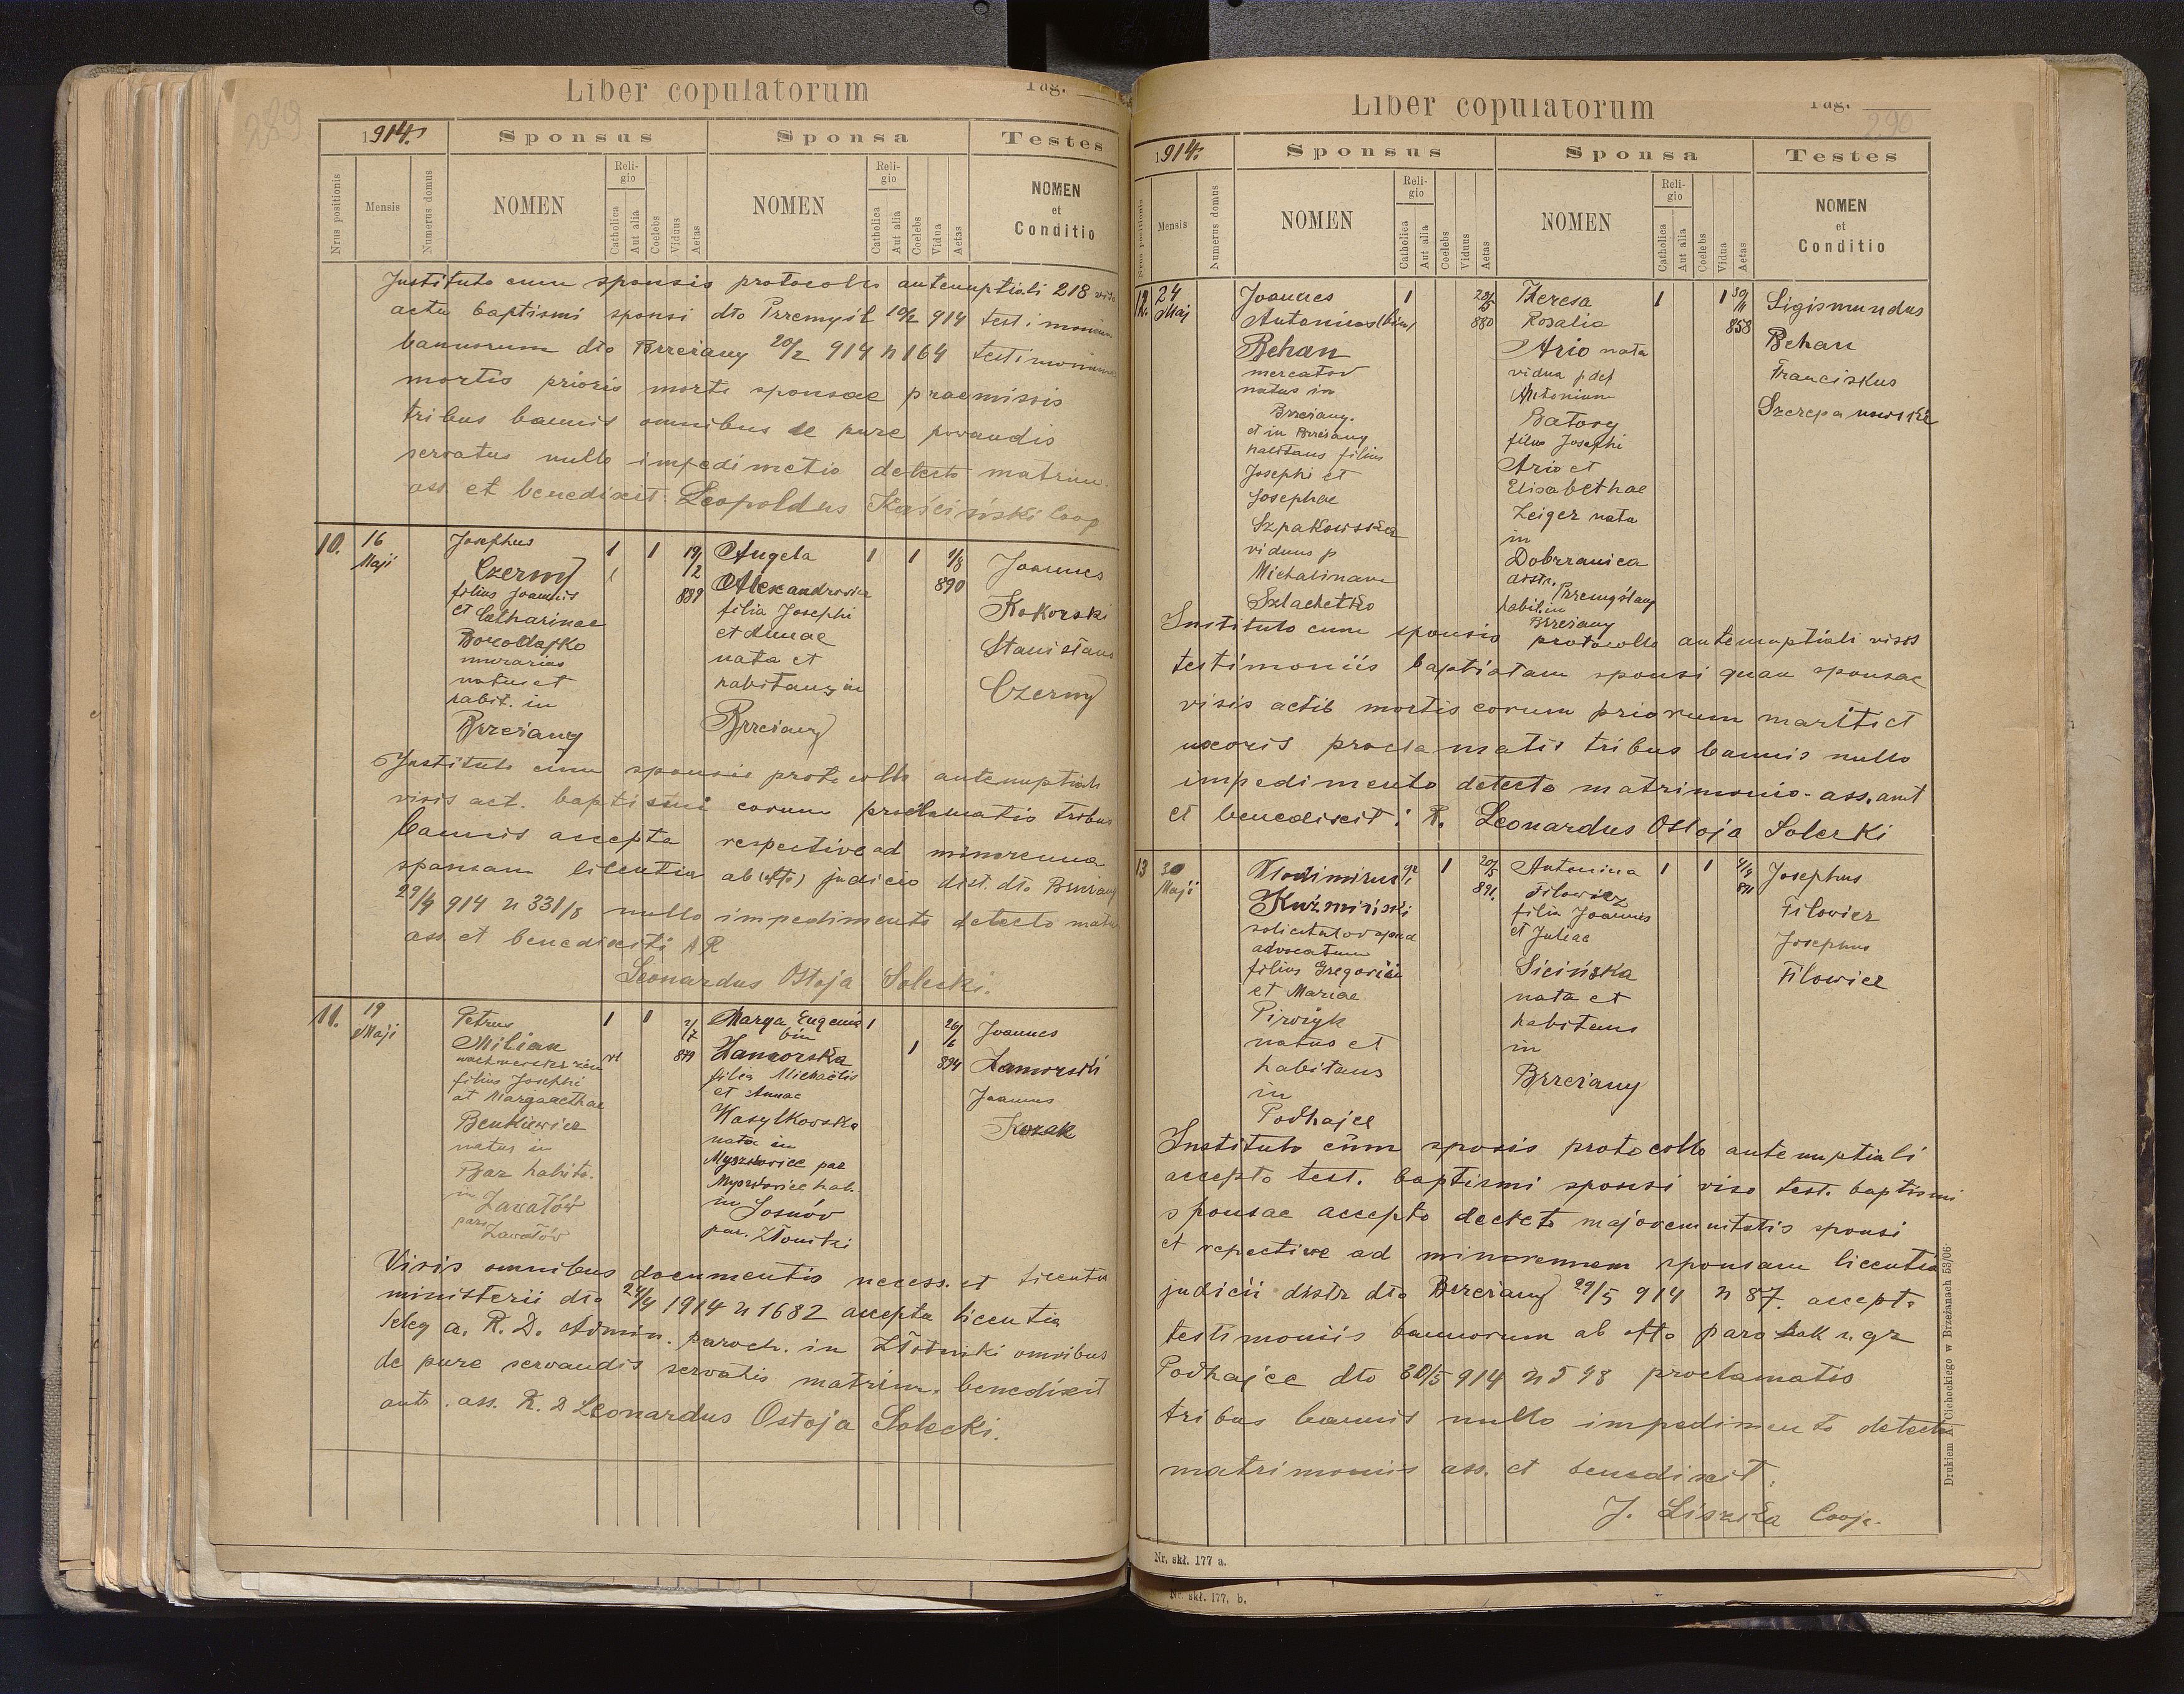 289
Liber copulatorum
Pag.
1914.
Sponsus
Sponsa
Testes
Nrus positionis
Mensis
Numerus domus
NOMEN
Religio
Catholica
Aut alia
Coelebs
Viduus
Aetas
NOMEN
Religio
Catholica
Aut alia
Coelebs
Vidua
Aetas
NOMEN
et
Conditio
Instituto cum sponsis protocollo antenuptiali 218 viso
actu baptismi sponsi dto Przemyśl 10/2 914 testimonium
bannorum dto Brzeżany 20/2 914 n 164 testimonium
mortis prioris sponsae praemissis
tribus bannis omnibus de pure
servatus nullo impedimetio detecto matrim.
ass. et benedixit: Leopoldus Kaściński Coop
10.
16
Maji
Josephus
Czerny
filius Joannis
et Catharinae
murarius
natus et
habit. in
Brzeżany
1
1
19/2
889
Angela
filia Josephi
et Annae
nata et
habitans in
Brzeżany
1
1
1/8
890
Joannes
Kokorski
Stanislaus
Czerny
Instituto cum sponsis protocollo antenuptiali
visis act. baptismi eorum proclamatis tribus
bannis accepta respective ad minorenna
sponsam licentia ab (otto) judicio dist. dto Brzeżany
29/4 914 n 331/8 nullo impedimento detecto matri
ass. et benedixit: R
Leonardus Ostoja Solecki.
11.
19
Maji
Petrus
Milian
filius Josephi
at Margarethae
Benkiewicz
natus in
Bar habit.
in Zawałów
par. Zawałów
1
1
2/7
879
Marya Eugenia
bin
Zamorska
filia Michaëlis
et Annae
Wasylkowska
nata in
Myszkowice par
Myszkowice hab.
in Sosnów
par. Złotniki
1
1
26/6
894
Joannes
Zamorski
Joannes
Kozak
Visis omnibus documentis necess. et licentia
ministerii dto 24/4 1914 n 1682 accepta licentia
deleg a. R. D. Admin. paroch. in Złotniki omnibus
de pure servandis servatis matrim. benedixit
ants. ass. R. D Leonardus Ostoja Solecki.
290
Liber copulatorum
Pag.
1914.
Sponsus
Sponsa
Testes
Nrus positionis
Mensis
Numerus domus
NOMEN
Religio
Catholica
Aut alia
Coelebs
Viduus
Aetas
NOMEN
Religio
Catholica
Aut alia
Coelebs
Vidua
Aetas
NOMEN
et
Conditio
12.
24
Maj
Joannes
Antonius (bin)
Behan
mercator
natus in
Brzeżany.
et in Brzeżany
habitans filius
Josephi et
Josephae
Szpakowska
viduus p
Michalinam
Szlachetko
1
880
Theresa
Rosalia
Ario nata
vidua p def
Antonium
Batory
filia Josephi
Ario et
Elisabethae
Zeiger nata
in
Dobrzanica
distr. Przemyślany
habit. in
Brzeżany
1
1
30/11
858
Sigismundus
Behan
Franciskus
Szczepanowski
Instituto cum sponsis protocollo antenuptiali visis
testimoniis baptiatam sponsi quan sponsae
visis actib mortis eorum priorum mariti et
uxoris proclamatis tribus bannis nullo
impedimento detecto matrimonio. ass. ant
et benedixit: R. Leonardus Ostoja Solecki
13
30
Maji
Wlodimirus
Kuźmiński
solicitator apud
advocatum
filius Gregorii
et Mariae
Pirożyk
natus et
habitans
in
Podhajce
1
20/5
891.
Antonina
Filowicz
filia Joannis
et Juliae
Sicińska
nata et
habitans
in
Brzeżany
1
1
4/9
891
Josephus
Filowicz
Josephus
Filowicz
Instituto cum sposis protocollo antenuptiali
accepto test. baptismi sponsi viso test. baptismi
sponsae accepto decreto majorennitatis sponsi
et repective ad minorennem sponsam licentia
judicii distr dto Brzeżany 29/5 914 n 87. accepto
testimoniis bannorum ab otto paro r. gr
Podhajce dto 30/5 914 n 548 proclamatis
tribus bannis nullo impedimento detecto
matrimoniis ass. et benedixit:
J. Liszka Coop.
Drukiem Cichockiego w Brzeżanach 53/06.
Nr. skł. 177 a.
Nr. skł. 177, b.